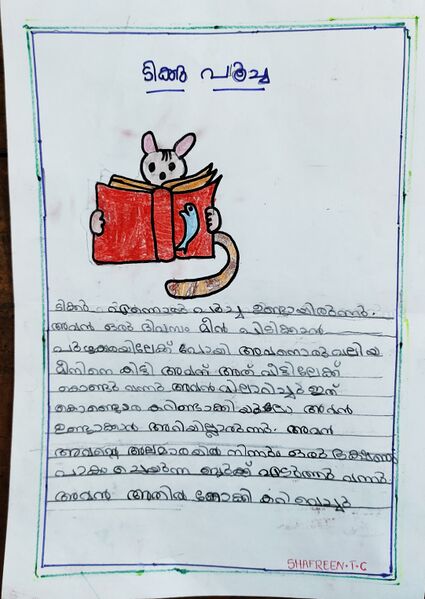 ടിക്കു പൂച്ച
ടിക്കു എന്നൊരു പൂച്ച ഉണ്ടായിരുന്നു.
അവൻ ഒരു ദിവസം മീൻ പിടിക്കാൻ
പുഴക്കരയിലേക്ക് പോയി അവനൊരു വലിയ
മീനിനെ കിട്ടി അവന് അത് വീട്ടിലേക്ക്
കൊണ്ടു വന്നു അവൻ വിചാരിച്ചു ഇത്
കൊണ്ടൊരു കറിണ്ടാക്കി അവൻ
ഉണ്ടാക്കാൻ അറിയില്ലാരുന്നു. അവൻ
അവന്റെ അലമാരയിൽ നിന്നും ഒരു ഭക്ഷണം
പാകം ചെയ്യുന്ന ബുക്ക് എടുത്തു വന്നു.
അവൻ അതിൽ നോക്കി കറി വെച്ചു
SHAFREEN.T.C